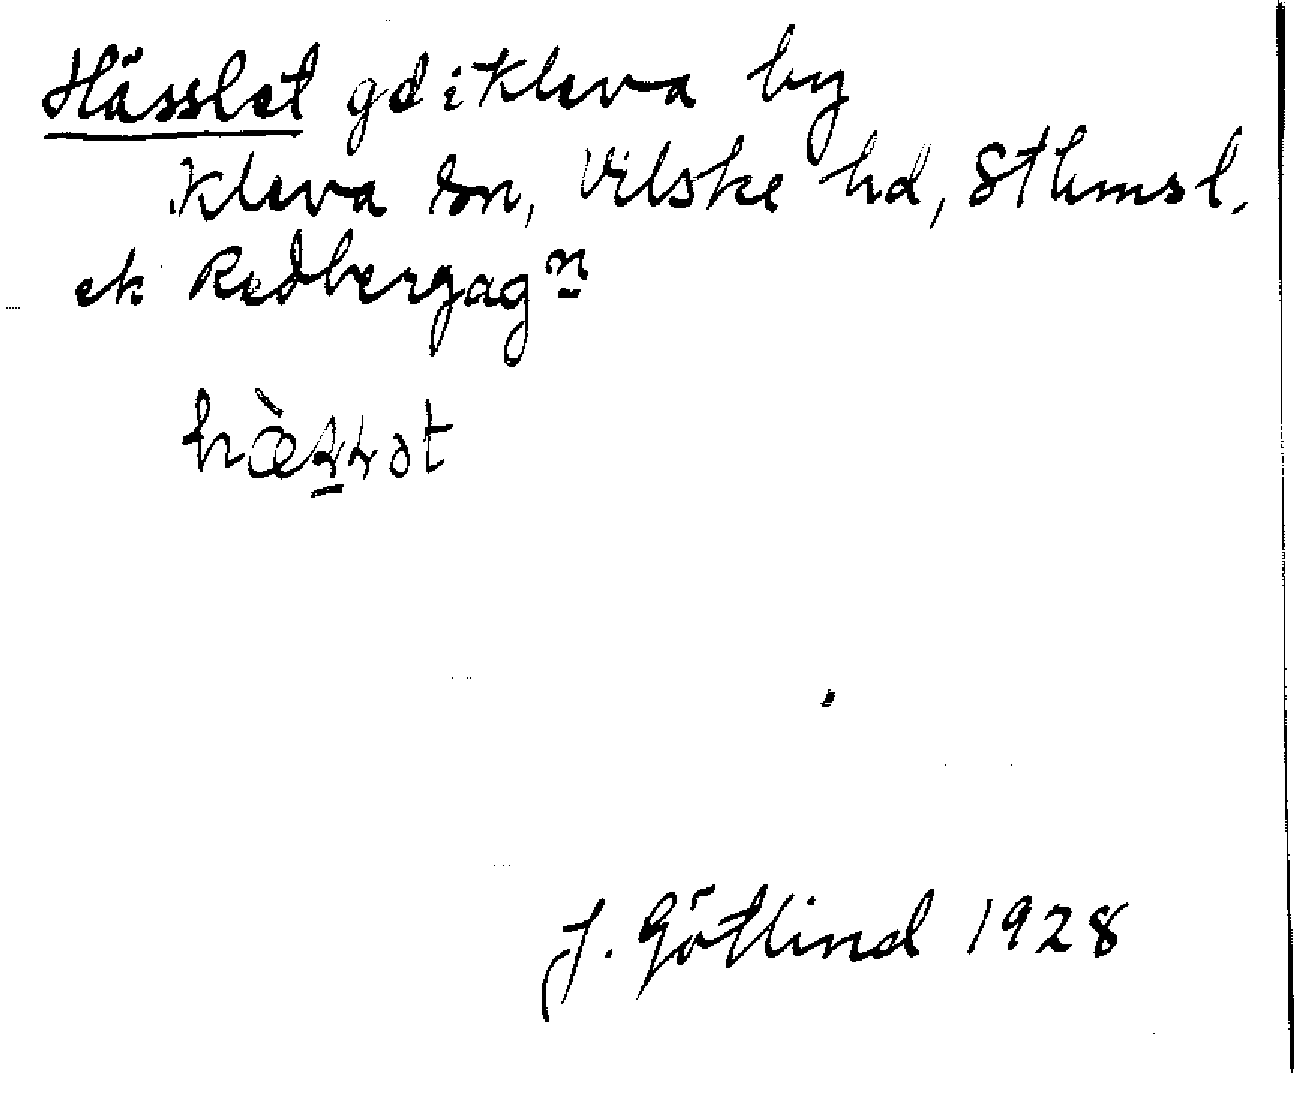 Hässlet gd i Kleva by
Kleva sn, Vilske hd, Sthmsl.
ek Redbergag<sup>n</sup>
J. Götlind 1928